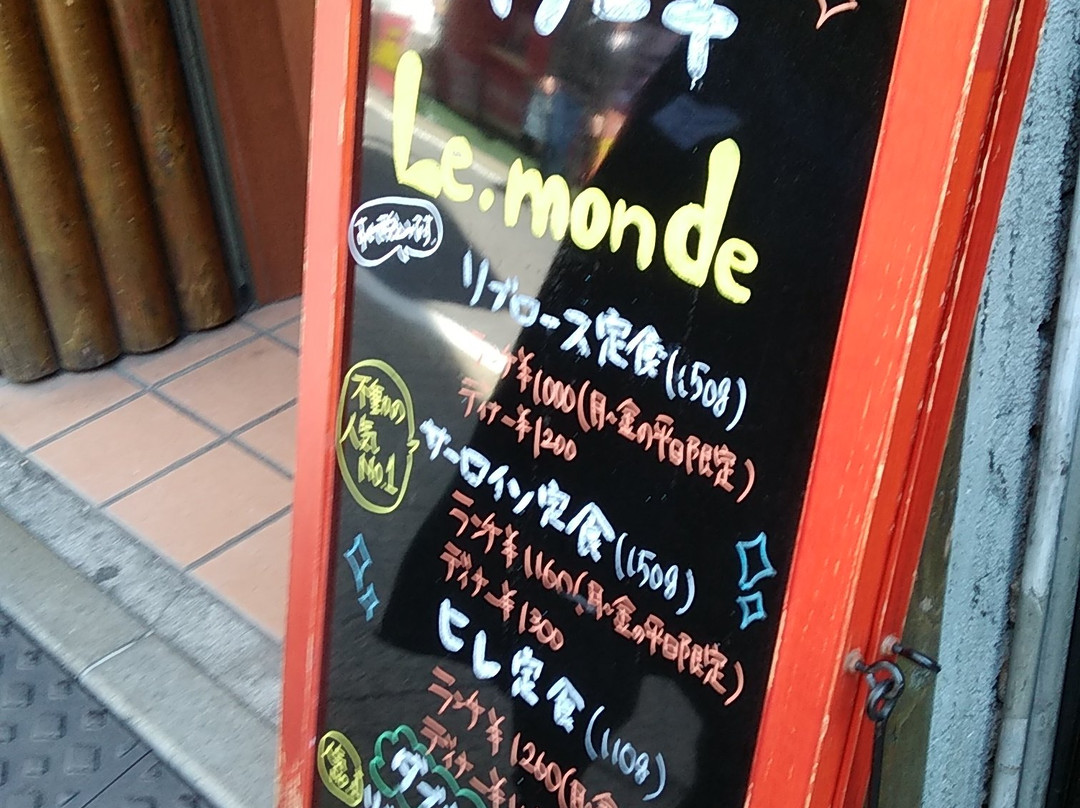 Le.monde
リブロース定食(150g)
ランチ¥1000(月~金の平日限定)
ディナー¥1200
不動の
人気
No.1
サーロイン定食(150g)
ランチ¥1160(月~金の平日限定)
ディナー¥1300
ヒレ定食(110g)
ランチ¥1260(月~金
ディナー¥